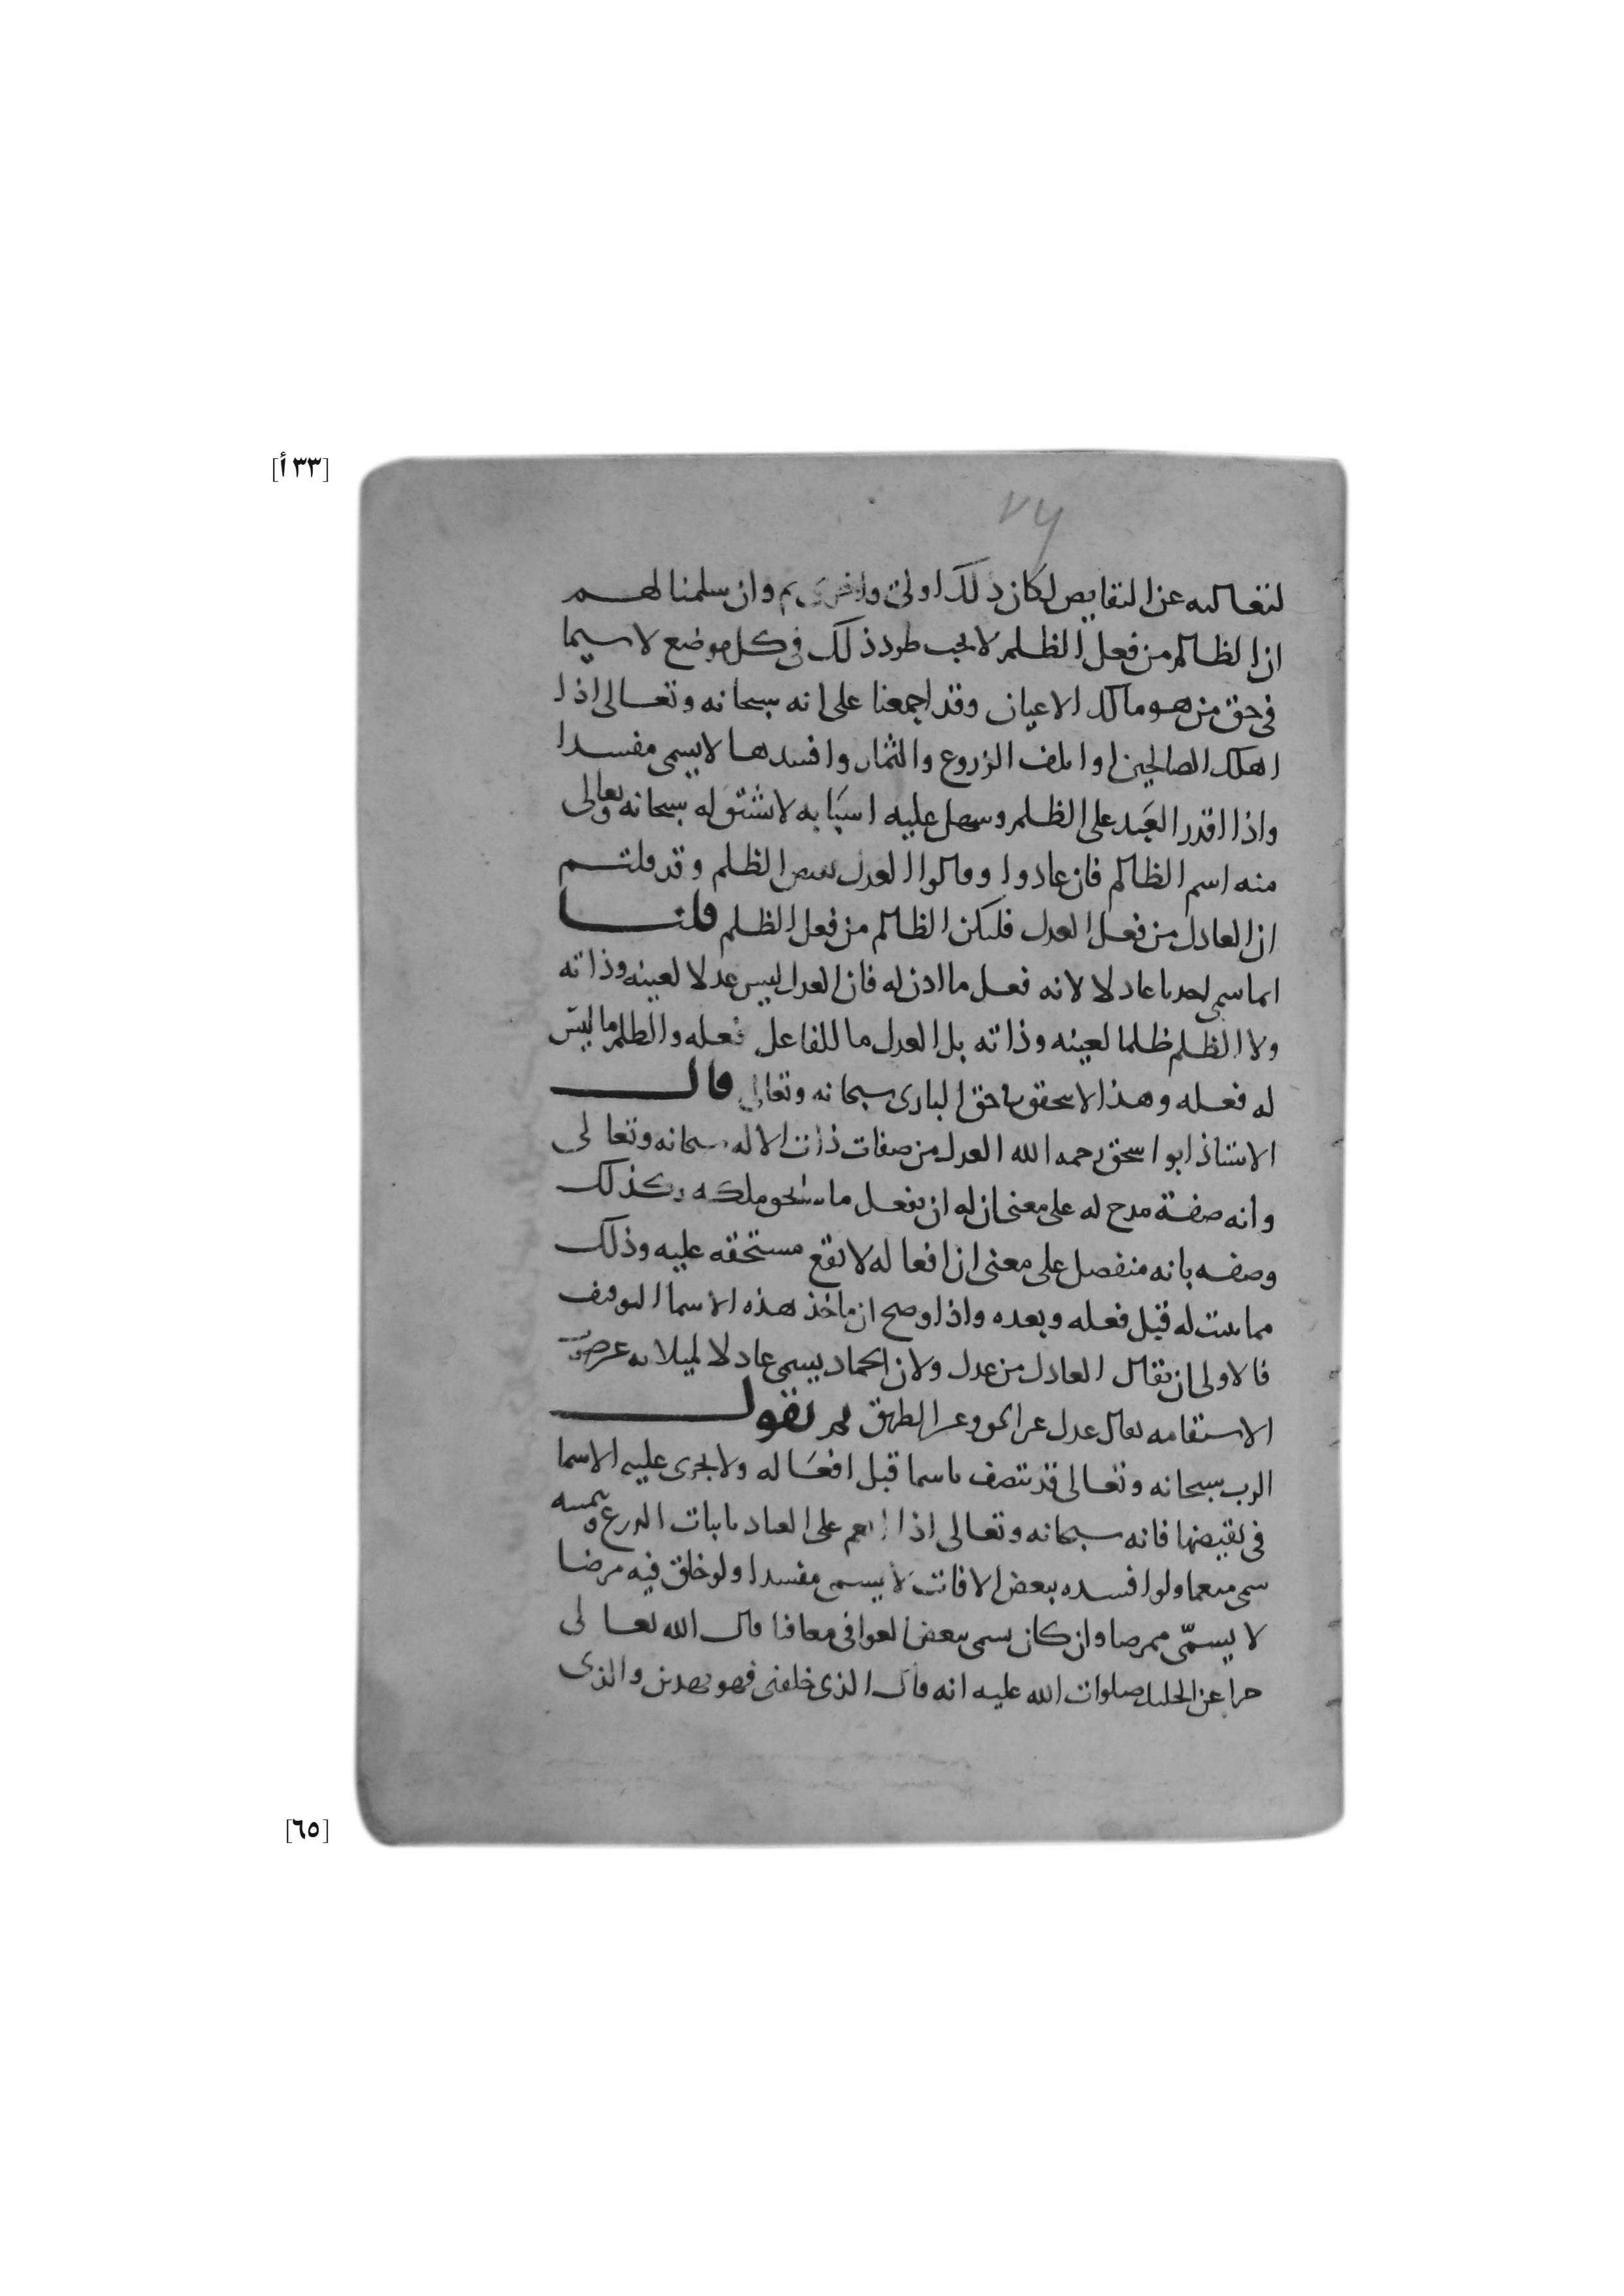 [٣٣ أ]
٧٦
لتعاليه عن النقايص لكان ذلك اولى واحرى ثم وان سلمنا لهم
ان الظالم من فعل الظلم لا يجب طرد ذلك في كل موضع لاسيما
في حق من هو مالك الاعيان وقد اجمعنا على انه سبحانه وتعالى اذا
اهلك الصالحين او اتلف الزروع والثمار وافسدها لا يسمى مفسدا
واذا اقدر العبد على الظلم وسهل عليه اسبابه لا يشتق له سبحانه وتعالى
منه اسم الظالم فان عادوا وقالوا العدل نقيض الظلم وقد قلتم
ان العادل من فعل العدل فليكن الظالم من فعل الظلم قلنا
انما سمى احدنا عادلا لانه فعل ما اذن له فان العدل ليس عدلا لعينه وذاته
ولا الظلم ظلما لعينه وذاته بل العدل ما للفاعل فعله والظلم ما ليس
له فعله وهذا لا يتحقق في حق البارى سبحانه وتعالى قال
الاستاذ ابو اسحق رحمه الله العدل من صفات ذات الاله سبحانه وتعالى
وانه صفة مدح له على معنى ان له ان يفعل ما يستحق ملكه وكذلك
وصفه بانه منفصل على معنى ان افعاله لا تقع مستحقه عليه وذلك
مما يثبت له قبل فعله وبعده واذا وضح ان ماخذ هذه الاسما التوقيف
فالاولى ان يقال العادل من عدل ولان الجماد يسمى عادلا لميلانه عن صوب
الاستقامه يقال عدل عن الحق وعن الطريق ثم نقول
الرب سبحانه وتعالى قد يتصف باسما قبل افعاله ولا يجرى عليه الاسما
في نقيضها فانه سبحانه وتعالى اذا انعم على العباد بانبات الزرع وتنميته
سمى منعما ولو افسده ببعض الافات لا يسمى مفسدا ولو خلق فيه مرضا
لا يسمّى ممرضا وان كان يسمى ببعض العوافى معافيا قال الله تعالى
خبرا عن الخليل صلوات الله عليه انه قال الذى خلقنى فهو يهدين والذى
[٦٥]